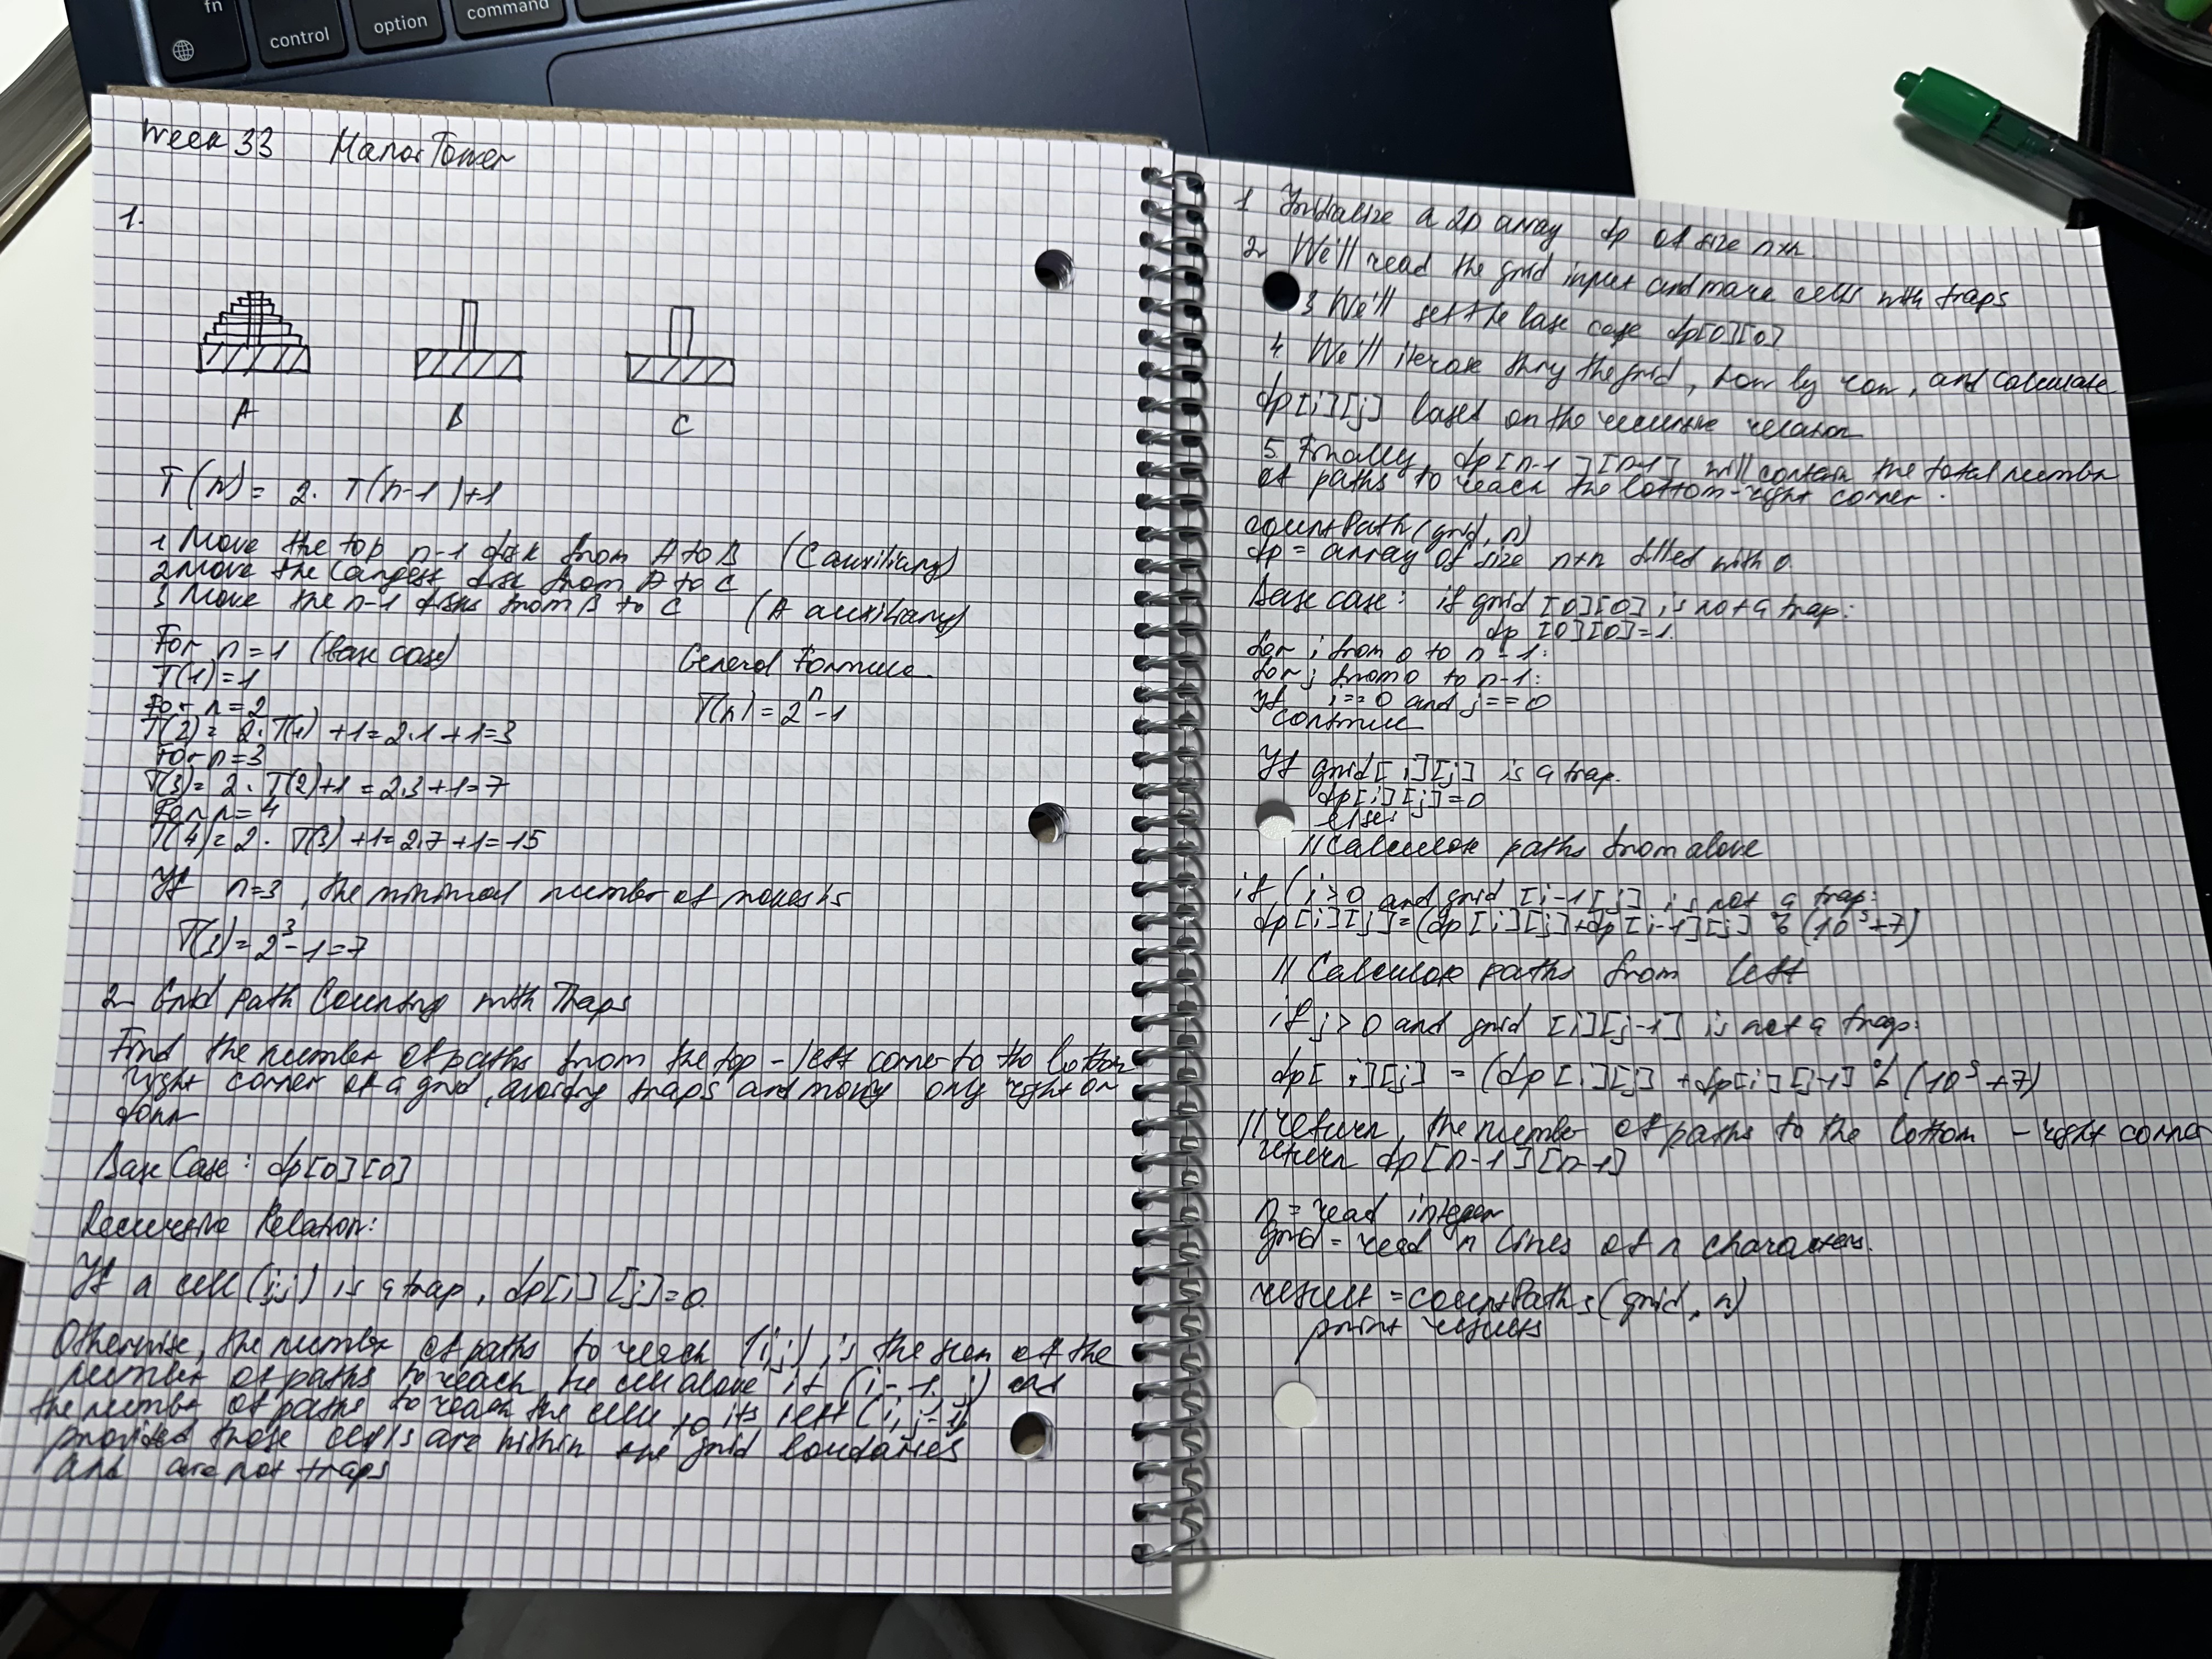 fn
control
option
command
Week 33 Hanoi Tower
1.
A B C
T(n) = 2. T(n-1)+1
1 Move the top n-1 disk from A to B (C auxiliary)
2 Move the largest disk from A to C
3 Move the n-1 disks from B to C (A auxiliary)
For n=1 (base case)
General Formula
T(1)=1
For n=2
T(n) = 2^n-1
T(2)= 2. T(1) +1=2.1+1=3
For n=3
T(3)= 2. T(2)+1=2.3+1=7
For n=4
T(4)=2. T(3)+1=2.7+1=15
If n=3, the minimal number of moves is
T(3)=2^3-1=7
2 Grid path Counting with Traps
Find the number of paths from the top-left corner to the bottom
right corner of a grid, avoiding traps and moving only right or
down
Base Case: dp[0][0]
Recursive Relation:
If a cell (i,j) is a trap, dp[i][j]=0.
Otherwise, the number of paths to reach (i,j) is the sum of the
number of paths to reach the cell above it (i-1, j) and
the number of paths to reach the cell to its left (i, j-1)
provided those cells are within the grid boundaries
and are not traps
1 Initialize a 2D array dp of size n×n.
2 We'll read the grid input and mark cells with traps
3 We'll set the base case dp[0][0]
4. We'll iterate thry the grid, row by row, and calculate
dp[i][j] based on the recursive relation
5. Finally, dp[n-1][n-1] will contain the total number
of paths to reach the bottom-right corner.
countPath(grid, n)
dp = array of size n×n filled with 0.
Base case: if grid [0][0] is not a trap:
dp [0][0]=1.
for i from 0 to n-1:
for j from 0 to n-1:
If i==0 and j==0
continue
If grid[i][j] is a trap.
dp[i][j]=0
else:
// Calculate paths from above
if (i>0 and grid [i-1[j] is not a trap:
dp[i][j]=(dp[i][j]+dp[i-1][j] % (10^9+7)
// Calculate paths from left
if j>0 and grid [i][j-1] is not a trap:
dp[i][j] = (dp[i][j] +dp[i][j-1] % (10^9+7)
// return the number of paths to the bottom - right corner
return dp[n-1][n-1]
n = read integer
grid = read n lines of n characters.
result = countPaths(grid, n)
print results